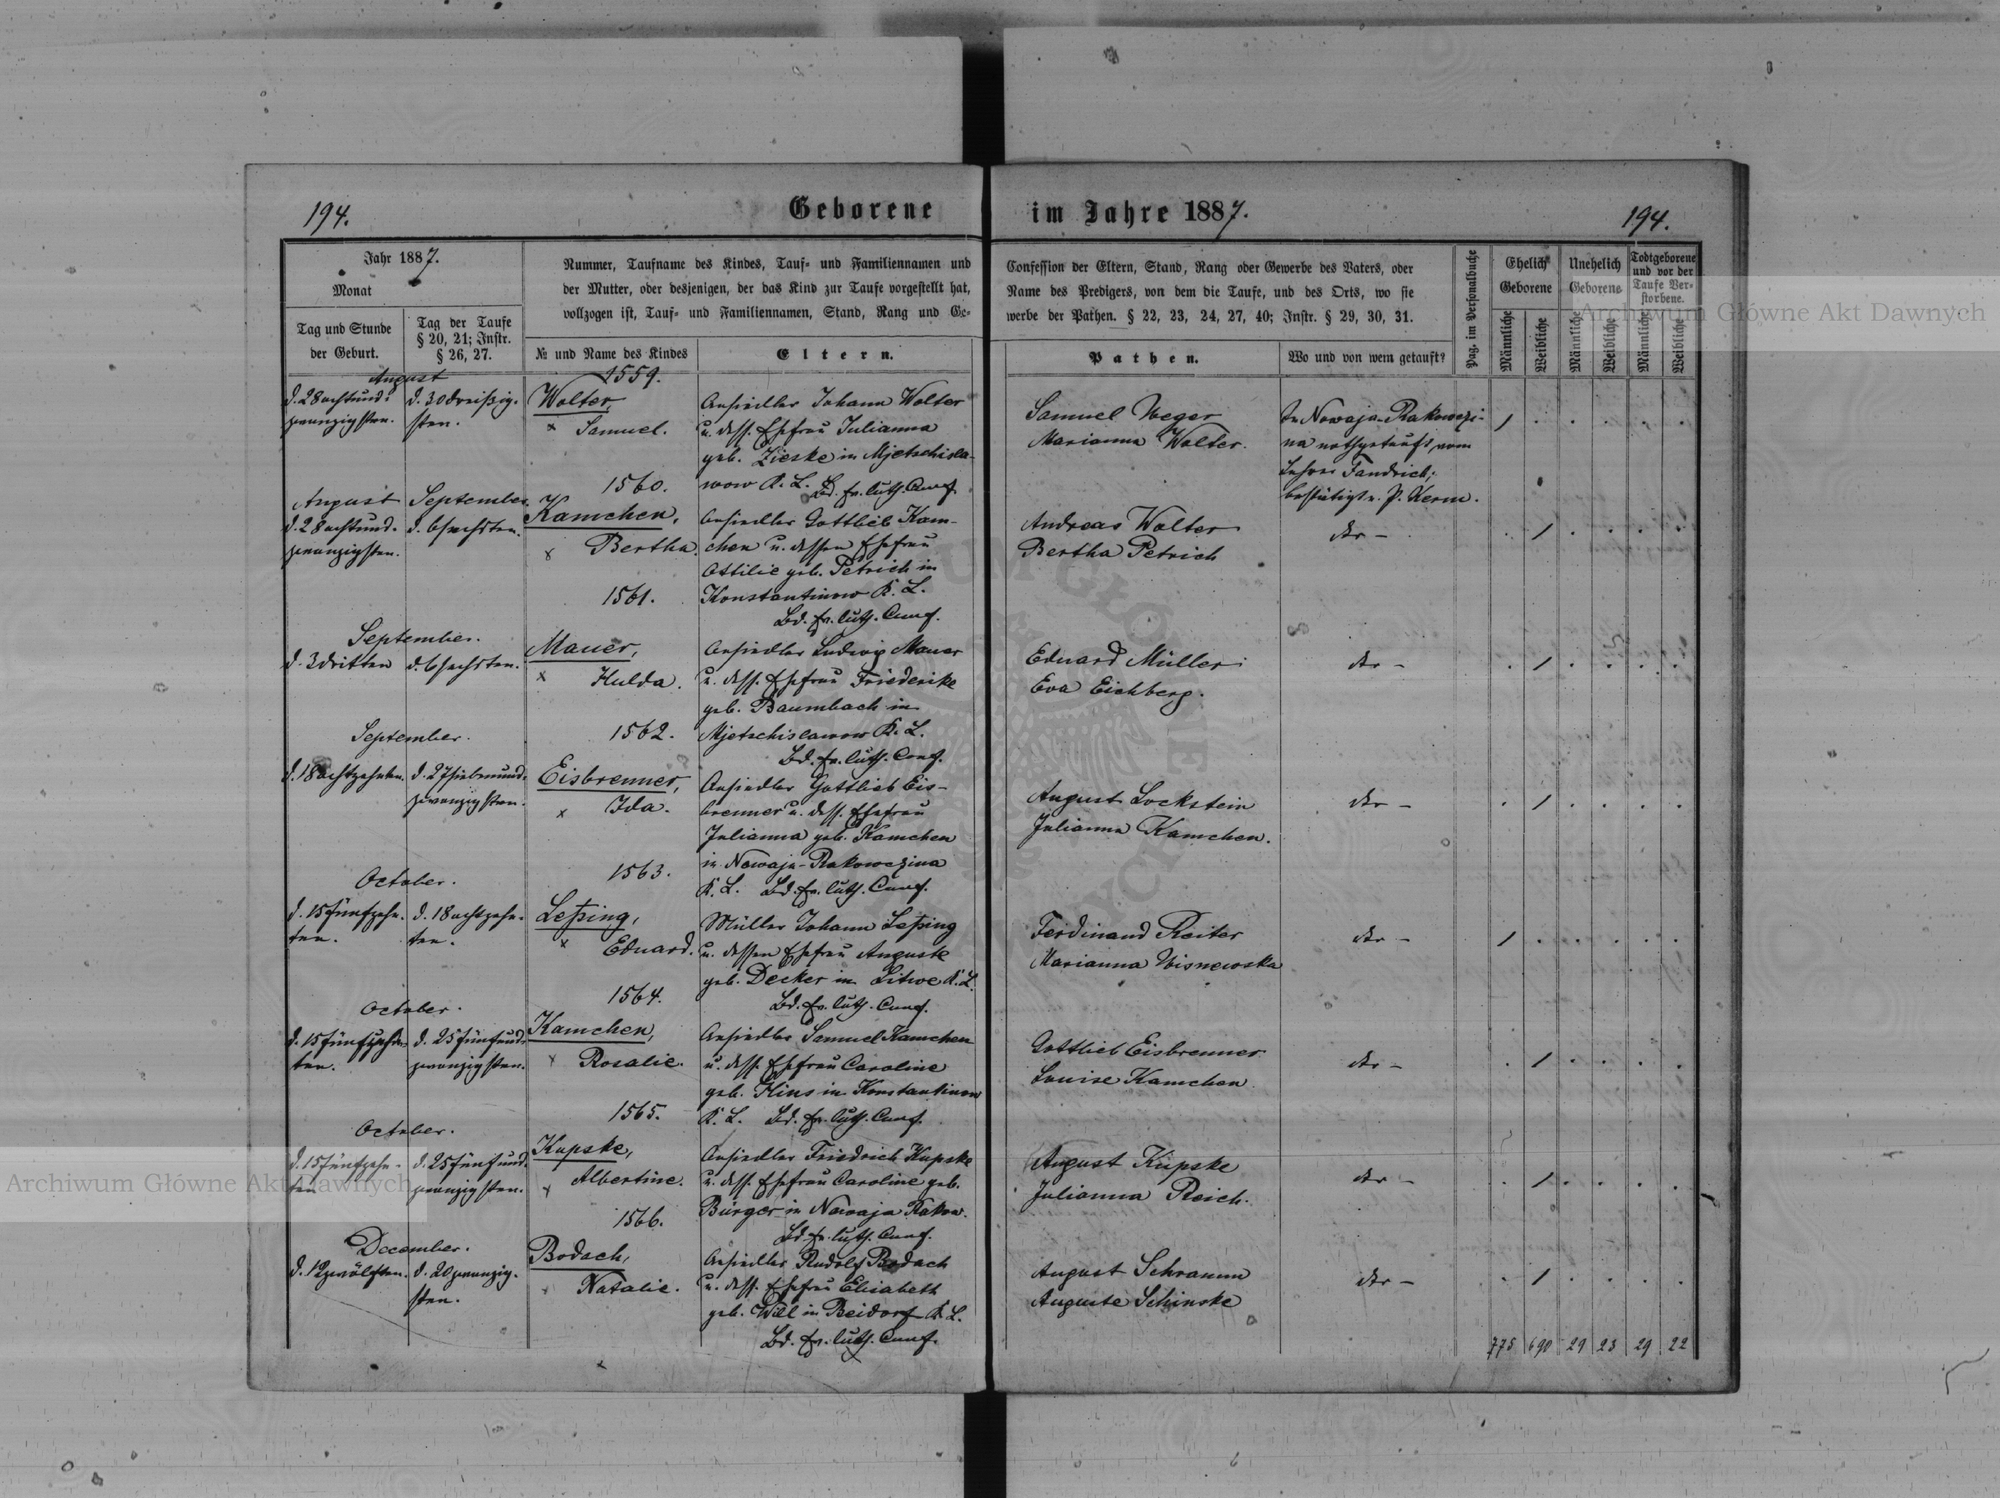 194.
Geborene
im Jahre 1887.
194.
Jahr 1887.
Monat
Tag und Stunde
der Geburt.
Tag der Taufe
§ 20, 21; Instr.
§ 26, 27.
Nummer, Taufname des Kindes, Tauf- und Familiennamen und
der Mutter, oder desjenigen, der das Kind zur Taufe vorgestellt hat,
vollzogen ist, Tauf- und Familiennamen, Stand, Rang und Ge-
№ und Name des Kindes
Eltern.
Confession der Eltern, Stand, Rang oder Gewerbe des Vaters, oder
Name des Predigers, von dem die Taufe, und des Orts, wo sie
werbe der Pathen. § 22, 23, 24, 27, 40; Instr. § 29, 30, 31.
Pathen.
Wo und von wem getauft?
Pag. im Personalbuche
Ehelich
Geborene
Unehelich
Geborene
Todtgeborene
und vor der
Taufe Ver-
storbene.
Männliche
Weibliche
Männliche
Weibliche
Männliche
Weibliche
August
d. 28 achtund-
zwanzigsten.
d. 30 dreißig-
sten.
1559.
Wolter,
× Samuel.
Ansiedler Johann Wolter
u. dess. Ehefrau Julianna
geb. Zieske in Mjetschisla-
wow K. L. Bd. ev. luth. Conf.
Samuel Weger
Marianna Wolter.
In Nowaja-Rakowezi-
na nothgetauft vom
Lehrer Fandrich;
bestätigt v. P. Kerm.
1 . . . . .
August
d. 28 achtund-
zwanzigsten.
September.
d. 6 sechsten.
1560.
Kamchen,
× Bertha.
Ansiedler Gottlieb Kam-
chen u. dessen Ehefrau
Ottilie geb. Petrich in
Konstantinow K. L.
Bd. ev. luth. Conf.
Andreas Wolter
Bertha Petrich
dto -
. 1 . . . .
September.
d. 3 dritten
d. 6 sechsten.
1561.
Mauer,
× Hulda.
Ansiedler Ludwig Mauer
u. dess. Ehefrau Friederike
geb. Baumbach in
Mjetschislawow K. L.
Bd. ev. luth. Conf.
Eduard Müller
Eva Eichberg.
dto -
. 1 . . . .
September.
d. 18 achtzehnten.
d. 27 siebenund-
zwanzigsten.
1562.
Eisbrenner,
× Ida.
Ansiedler Gottlieb Eis-
brenner u. dess. Ehefrau
Julianna geb. Kamchen
in Nowaja-Rakowezina
K. L. Bd. ev. luth. Conf.
August Lockstein
Julianna Kamchen.
dto -
. 1 . . . .
October.
d. 15 fünfzehn-
ten.
d. 18 achtzehn-
ten.
1563.
Leßing,
× Eduard.
Müller Johann Leßing
u. dessen Ehefrau Auguste
geb. Decker in Litwe K. L.
Bd. ev. luth. Conf.
Ferdinand Reiter
Marianna Wisnewska
dto -
1 . . . . .
October.
d. 15 fünfzehn-
ten.
d. 25 fünfund-
zwanzigsten.
1564.
Kamchen,
× Rosalie.
Ansiedler Samuel Kamchen
u. dess. Ehefrau Caroline
geb. Hins in Konstantinow
K. L. Bd. ev. luth. Conf.
Gottlieb Eisbrenner
Louise Kamchen
dto -
. 1 . . . .
October.
d. 15 fünfzehn-
ten
d. 25 fünfund-
zwanzigsten.
1565.
Kupske,
× Albertine.
Ansiedler Friedrich Kupske
u. dess. Ehefrau Caroline geb.
Bürger in Nowaja Rakow.
Bd. ev. luth. Conf.
August Kupske
Julianna Reich.
dto -
. 1 . . . .
December.
d. 12 zwölften.
d. 20 zwanzig-
sten.
1566.
Bodach,
× Natalie.
Ansiedler Rudolf Bodach
u. dess. Ehefrau Elisabeth
geb. Will in Reidorf K. L.
Bd. ev. luth. Conf.
August Schramm
Auguste Schinske
dto -
. 1 . . . .
775 690 29 23 29 22
Archiwum Główne Akt Dawnych
Archiwum Główne Akt Dawnych